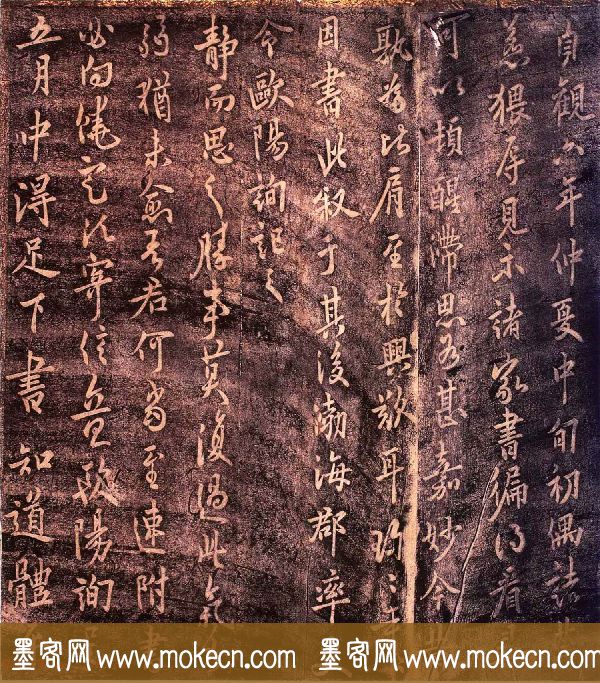 貞觀六年仲夏中旬初偶詣
慈猥辱見示諸家書徧得看
可以頓醒滯思為甚嘉妙今
孰為比肩至於興歎耳
因書此叙于其後渤海郡率
令歐陽詢記之
靜而思之勝事莫復過此氣
弱猶未愈吾君何當至速附書
必向饒定次寄信立歐陽詢
五月中得足下書知道體
墨客网 www.mokecn.com 墨客网 www.mokecn.com